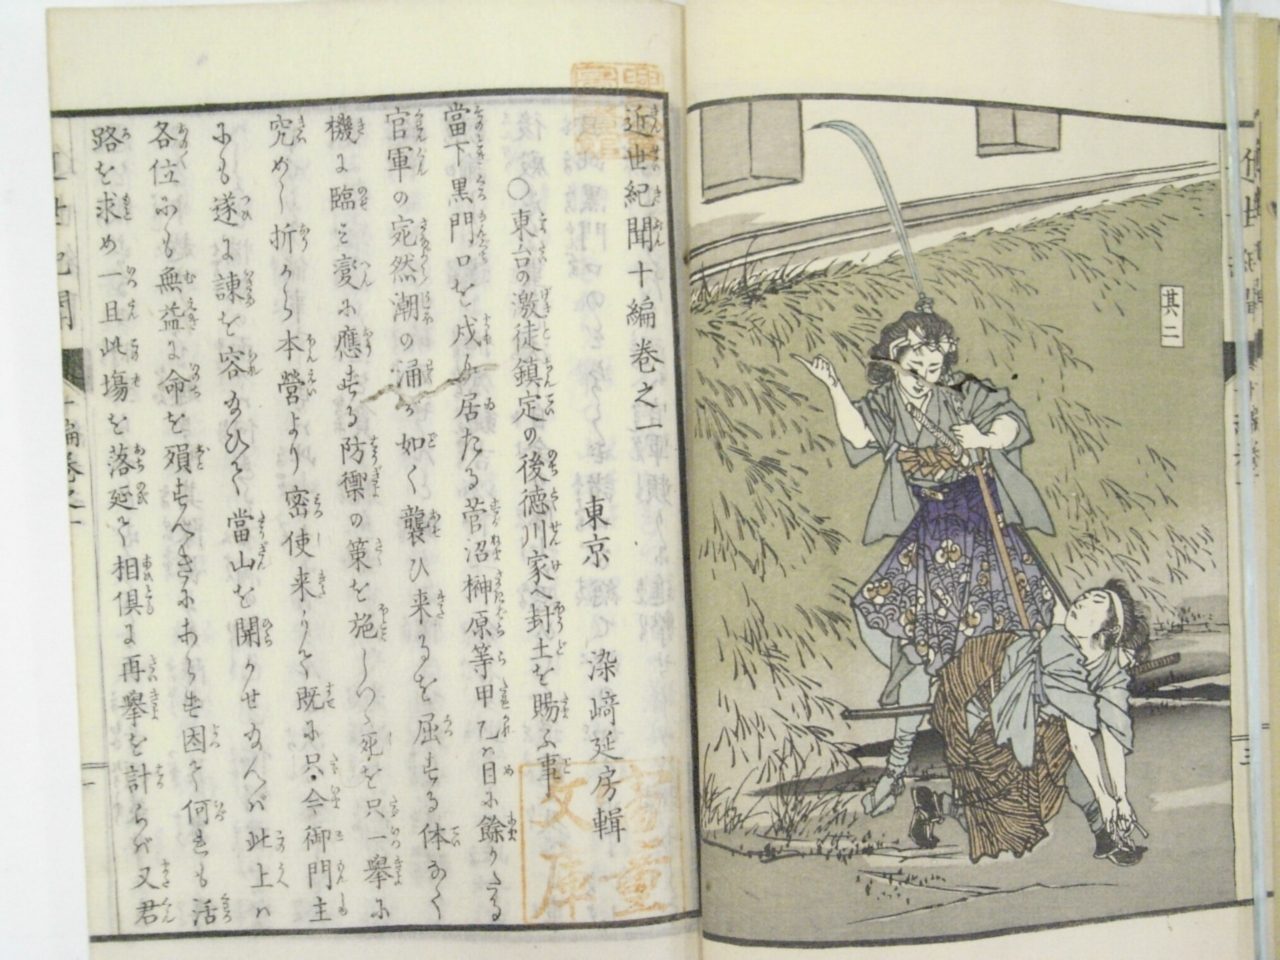 其二
近世紀聞十編巻之一
東京 染﨑延房輯
○東台の激徒鎮定の後徳川家へ封土を賜ふ事
當下黒門口を戍り居たる菅沼榊原等甲乙ハ目に餘りたる
官軍の宛然潮の涌が如く襲ひ来るを屈する体なく
機に臨み変に應ずる防禦の策を施しつゝ死を只一挙に
究めし折から本營より密使来りて既に只今御門主
にも遂に諌を容給ひて當山を開かせ給へバ此上ハ
各位にも無益に命を殞すべきにあらず因て何にも活
路を求め一旦此塲を落延て相倶に再擧を計らバ又君